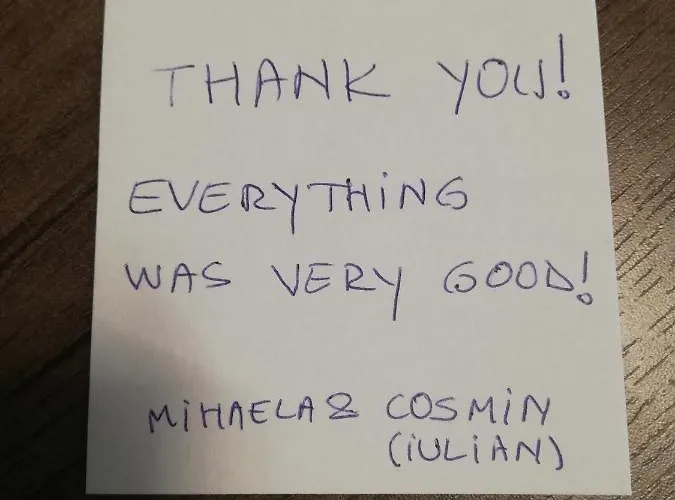 THANK YOU!
EVERYTHING
WAS VERY GOOD!
MiHAELA & COSMiN
(iULiAN)